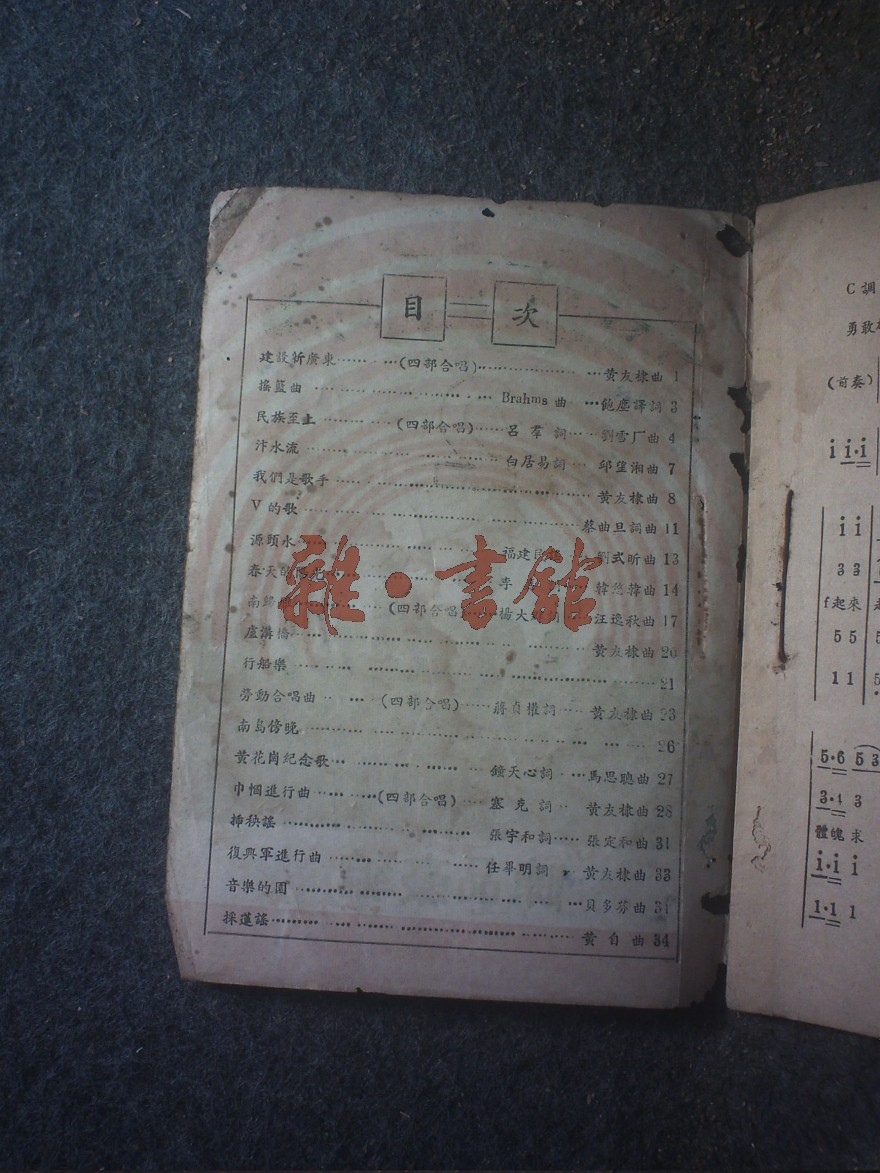 目次
建設新廣東 (四部合唱) 黃友棣曲 1
搖籃曲 Brahms 曲 鮑塵譯詞 3
民族至上 (四部合唱) 呂羣詞 劉雪厂曲 4
汴水流 白居易詞 邱望湘曲 7
我們是歌手 黃友棣曲 8
V的歌 蔡曲旦詞曲 11
源頭水 福建民 劉式昕曲 13
春天的陽光 李 韓悠韓曲 14
南歸 (四部合唱) 楊大 汪逸秋曲 17
盧溝橋 黃友棣曲 20
行船樂 21
勞動合唱曲 (四部合唱) 蔣貞權詞 黃友棣曲 23
南島傍晚 26
黃花崗紀念歌 鐘天心詞 馬思聰曲 27
巾幗進行曲 (四部合唱) 塞克詞 黃友棣曲 28
揷秧謠 張宇和詞 張定和曲 31
復興軍進行曲 任畢明詞 黃友棣曲 33
音樂的園 貝多芬曲
採蓮謠 黃自曲 34
雜·書館
C調
勇敢
(前奏)
i i·i
i i
3 3
f起來
5 5
1 1
5·6 5 3
3·1 3
體魄 求
i·i i
1·1 1